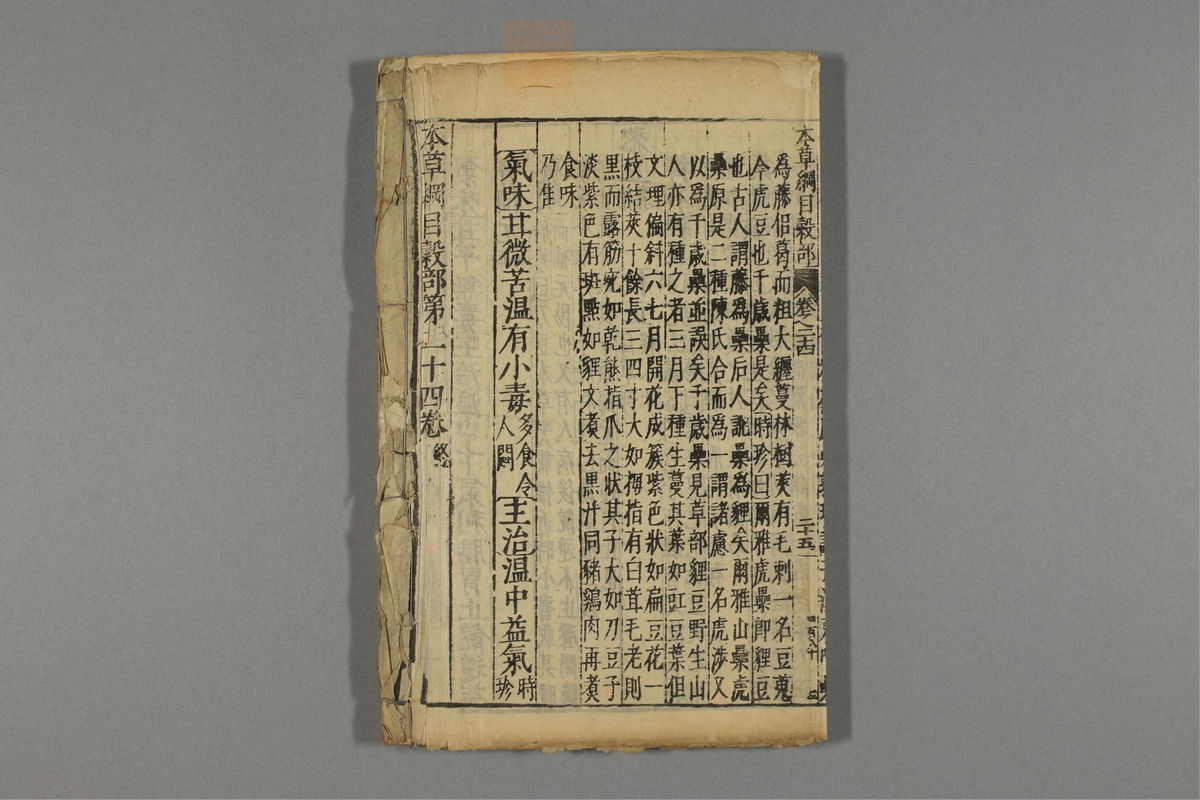 本草綱目穀部 卷之二十四 二十五
為藤侣葛而粗大纒蔓林樹莢有毛刺一名豆蒐
今虎豆也千歲虆是矣時珍曰爾雅虎虆卽貍豆
也古人謂藤為虆后人訛虆為貍矣爾雅山虆虎
虆原是二種陳氏合而為一謂諸慮一名虎涉又
以為千歲虆並誤矣千歲虆見草部貍豆野生山
人亦有種之者三月下種生蔓其葉如豇豆葉但
文理偏斜六七月開花成簇紫色狀如扁豆花一
枝結莢十餘長三四寸大如拇指有白茸毛老則
黒而露筋宛如乾熊指爪之狀其子大如刀豆子
淡紫色有斑點如貍文煮去黒汁同豬鷄肉再煮
食味
乃隹
氣味苷微苦温有小毒
多食令
人悶
主治温中益氣
時
珍
本草綱目穀部第二十四卷終